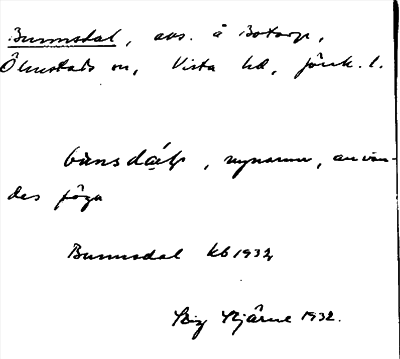 Bunnsdal, avs. å Botorp,
Ölmstads sn, Vista hd, Jönk. l.
bùnsdɑ́lp, nynamn, använ-
des föga
Bunnsdal kb 1932
Stig Bjärne 1932.